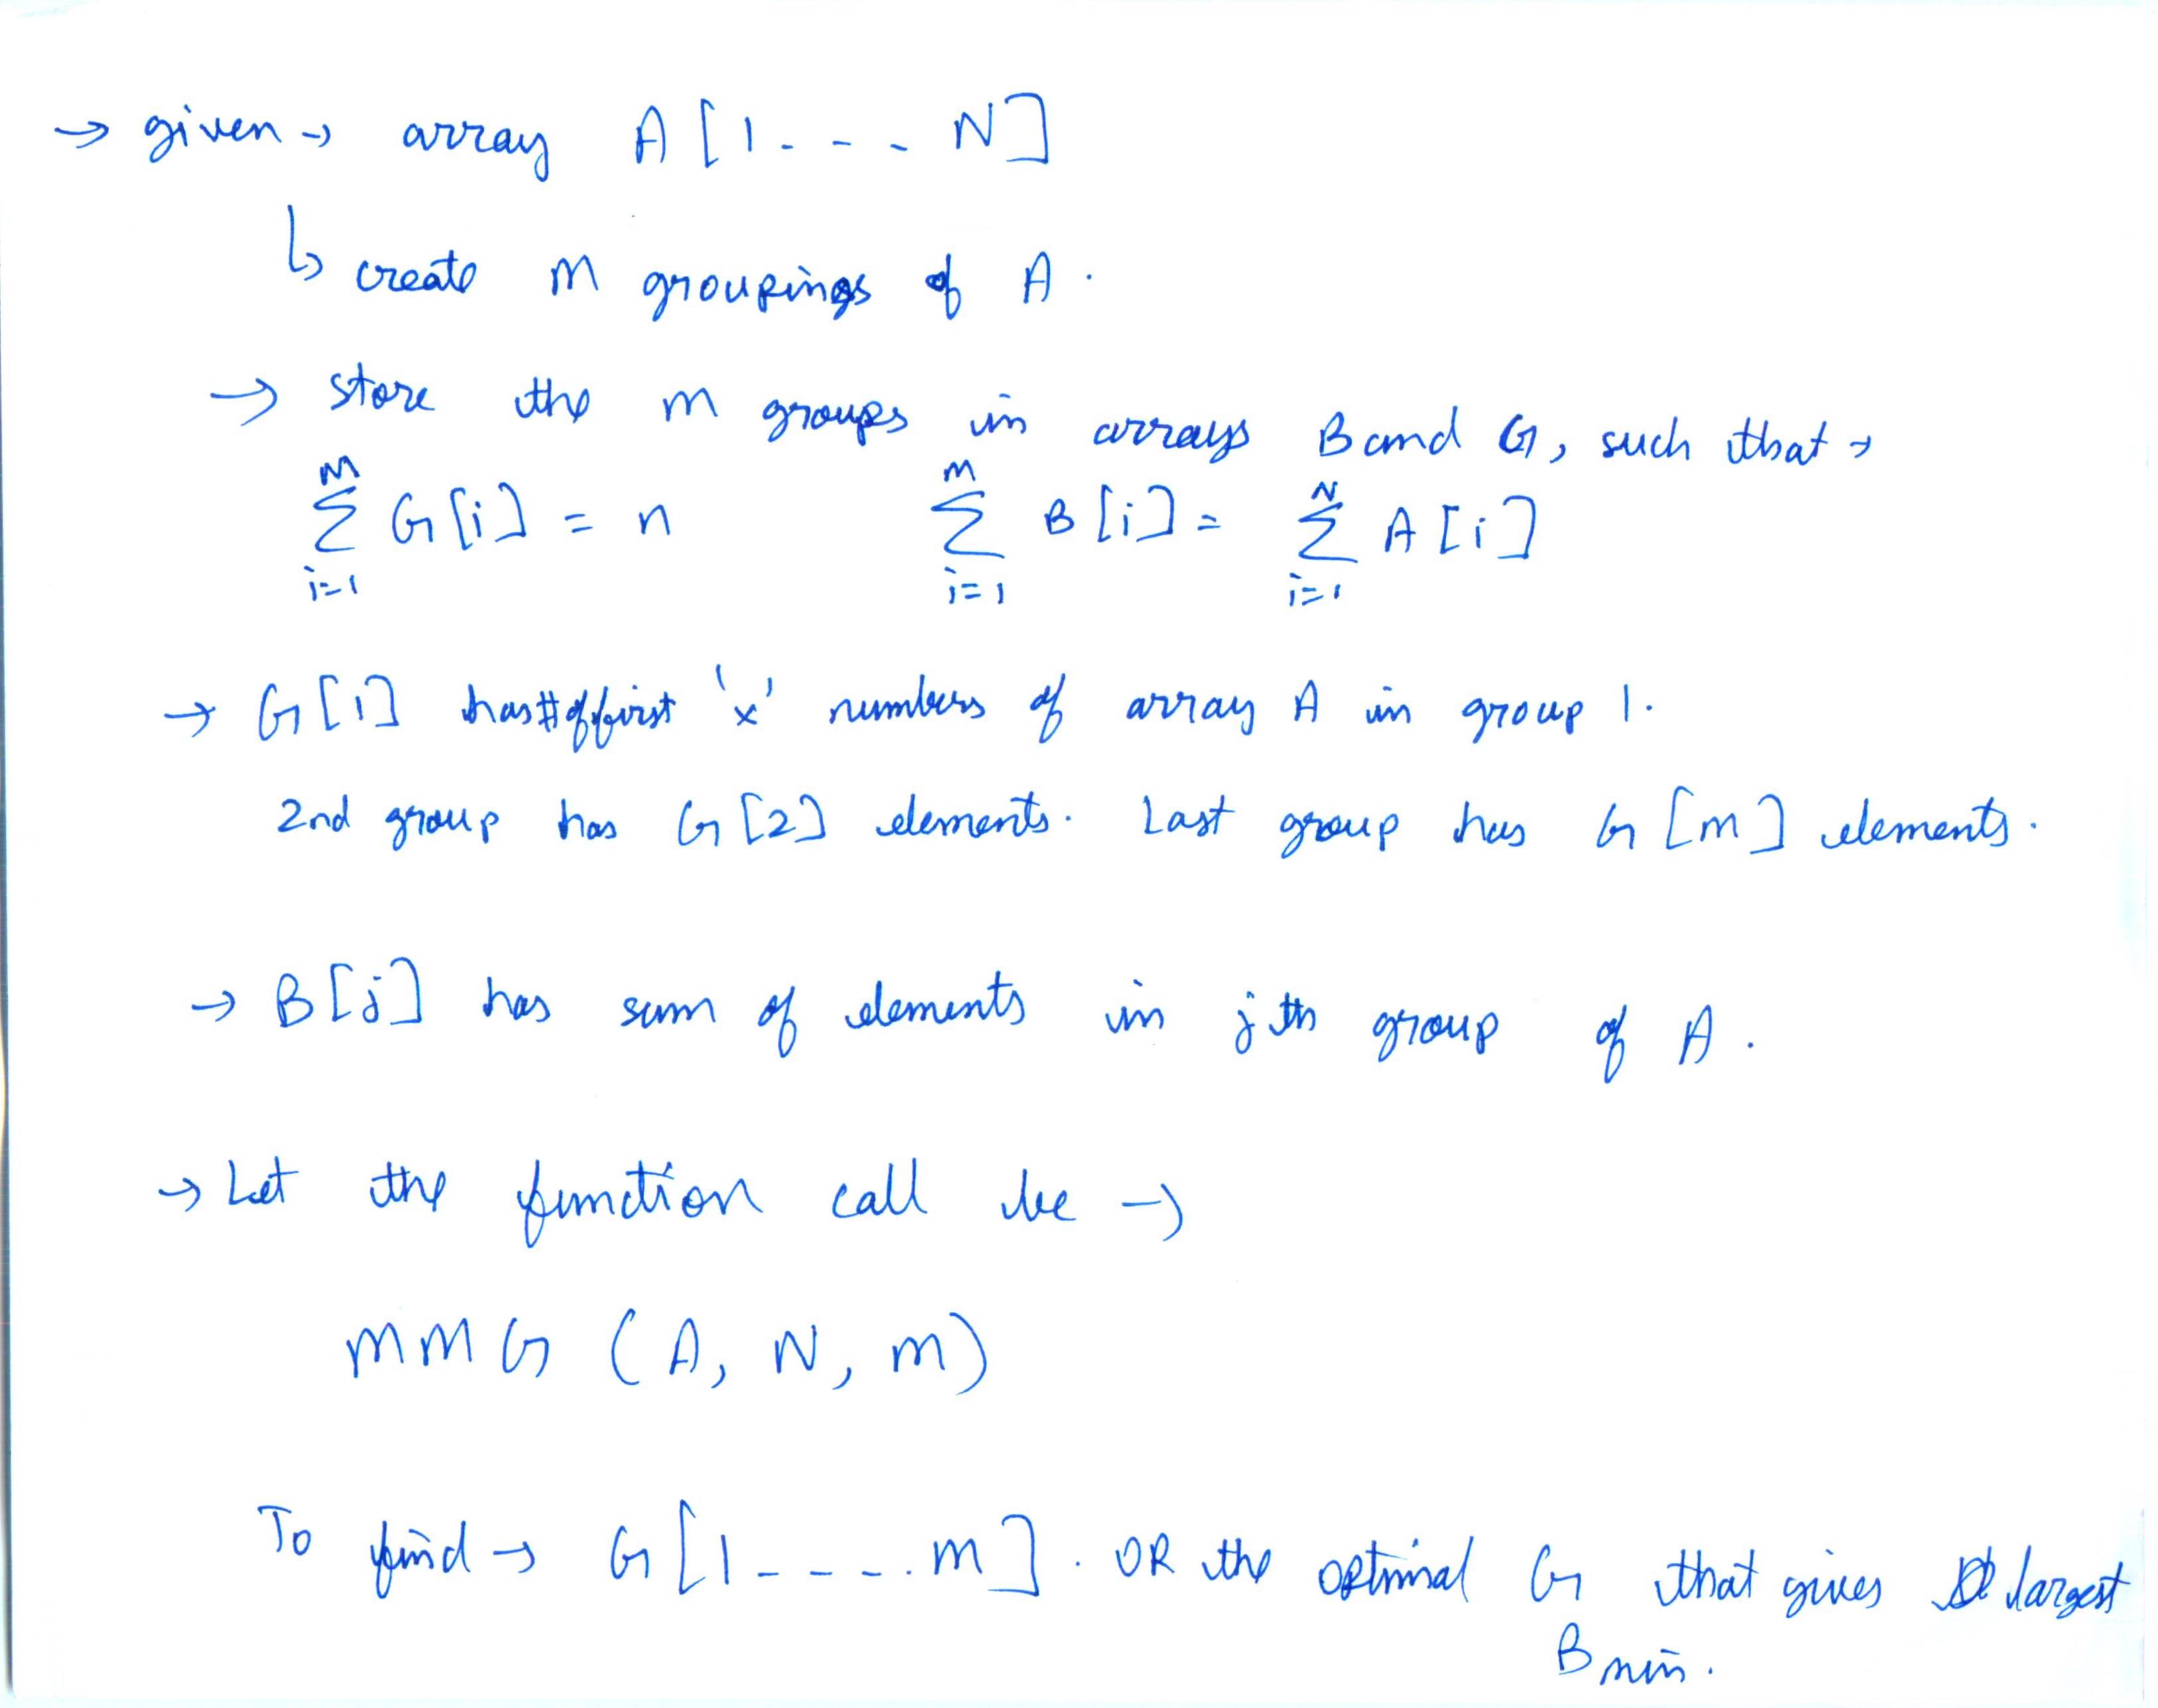 → given → array A[1 - - - N]
↳ create M groupings of A.
→ store the m groups in arrays B and G, such that →
M ∑ i=1 G[i] = n    m ∑ i=1 B[i] = N ∑ i=1 A[i]
→ G[1] has # of first 'x' numbers of array A in group 1.
2nd group has G[2] elements. Last group has G[m] elements.
→ B[j] has sum of elements in jth group of A.
→ Let the function call be →
MMG (A, N, m)
To find → G[1 - - - - . m]. OR the optimal G that gives largest
Bmin.